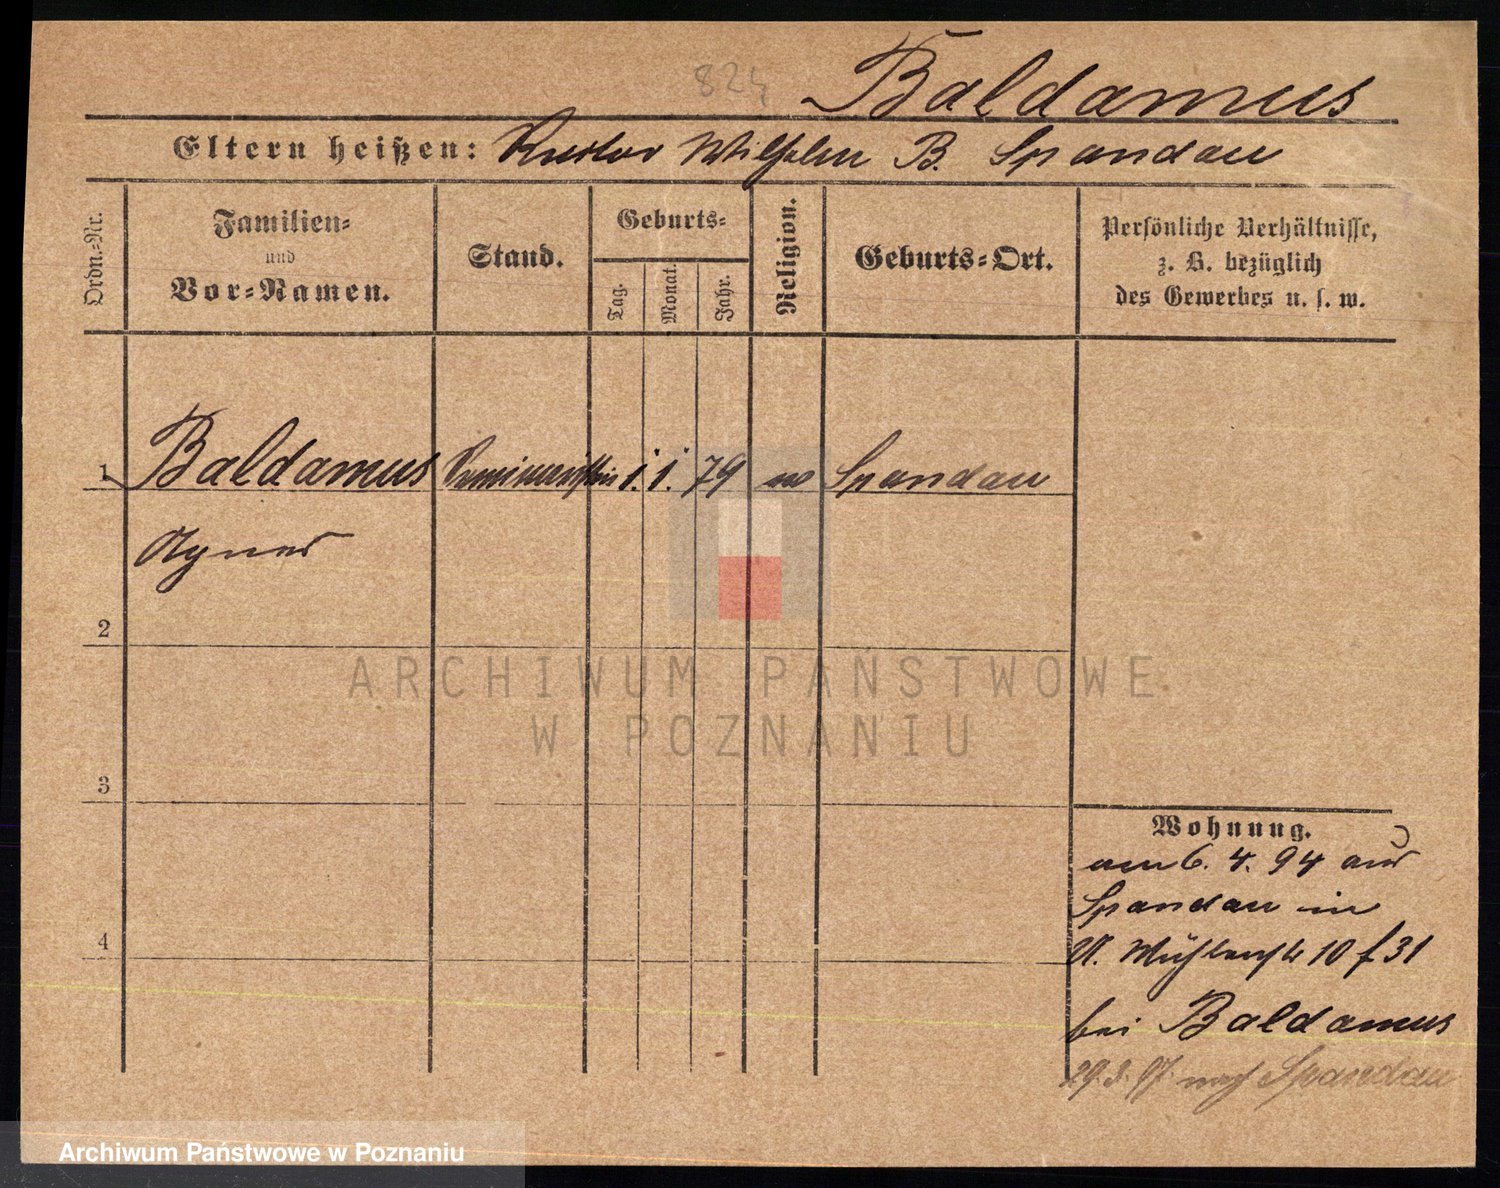 824
Baldamus
Eltern heißen: Wilhelm B. Spandau
Ordn.-Nr.
Familien-
und
Vor-Namen.
Stand.
Geburts-
Tag.
Monat.
Jahr.
Religion.
Geburts-Ort.
Persönliche Verhältnisse,
z. B. bezüglich
des Gewerbes u. s. w.
1 Baldamus 1. 1. 79 Spandau
Agnes
2
3
4
Wohnung.
am 6. 4. 94 aus
Spandau in
U. Mühlenstr 10 f 31
bei Baldamus
29. 3. 97. nach Spandau
ARCHIWUM PAŃSTWOWE
W POZNANIU
Archiwum Państwowe w Poznaniu